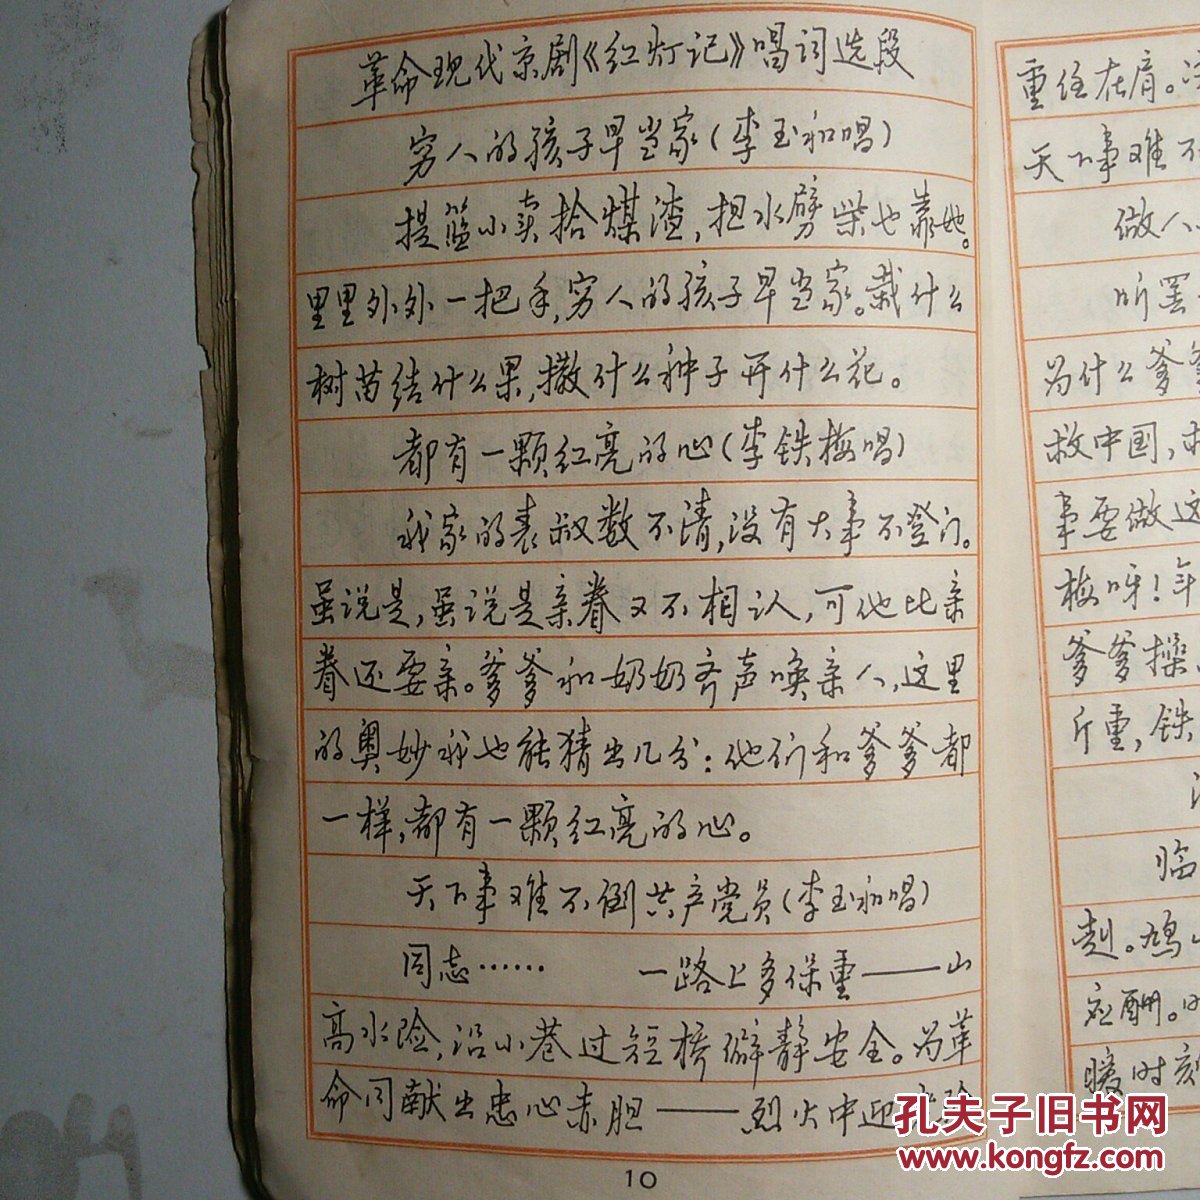 革命现代京剧《红灯记》唱词选段
穷人的孩子早当家(李玉和唱)
提篮小卖拾煤渣,担水劈柴也靠她。
里里外外一把手,穷人的孩子早当家。栽什么
树苗结什么果,撒什么种子开什么花。
都有一颗红亮的心(李铁梅唱)
我家的表叔数不清,没有大事不登门。
虽说是,虽说是亲眷又不相认,可他比亲
眷还要亲。爹爹和奶奶齐声唤亲人,这里
的奥妙我也能猜出几分:他们和爹爹都
一样,都有一颗红亮的心。
天下事难不倒共产党员(李玉和唱)
同志…… 一路上多保重——山
高水险,沿小巷过短桥僻静安全。为革
命同献出忠心赤胆——烈火中迎
10
重任在肩。
天下事难不
做人
听罢
为什么爹爹
救中国,
事要做这
梅呀!年
爹爹操
斤重,铁
临
赴。鸠山
应酬。时
暖时刻
孔夫子旧书网
www.kongfz.com